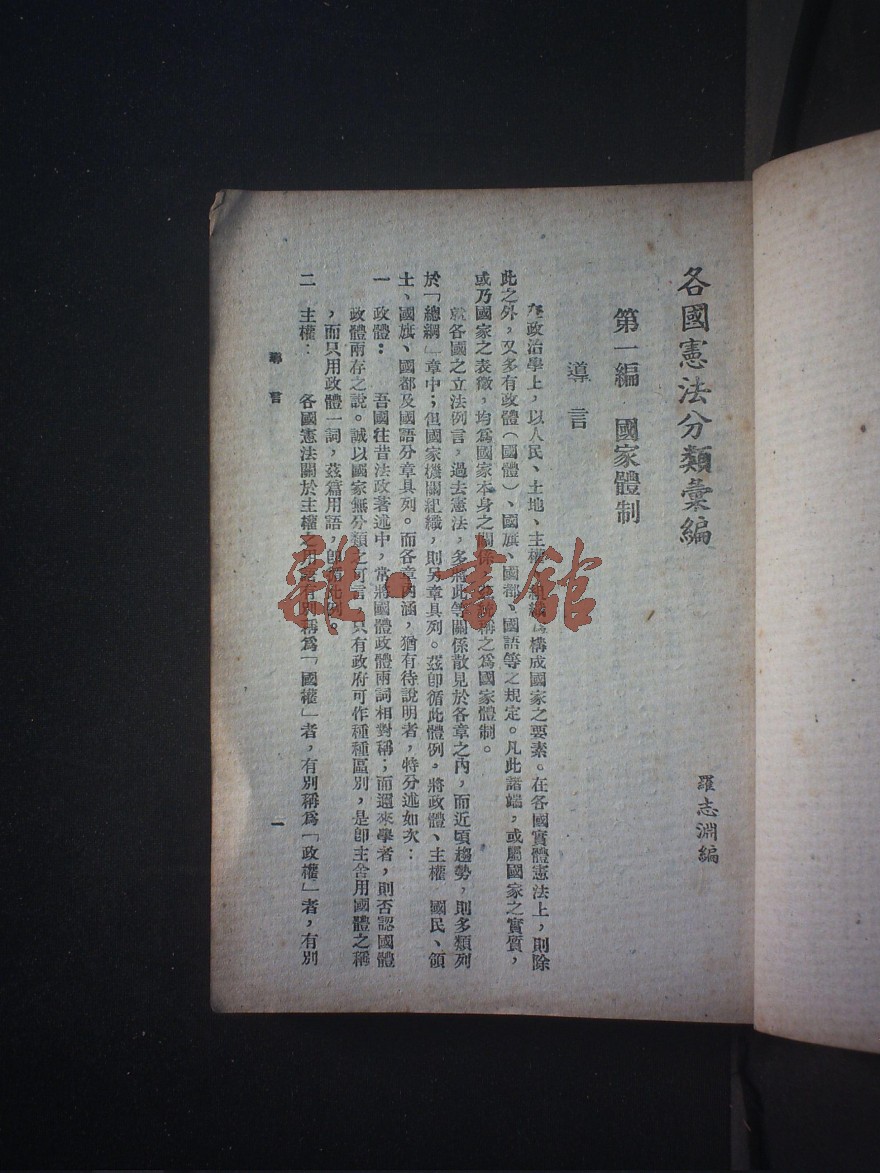 各國憲法分類彙編
羅志淵編
第一編 國家體制
導言
在政治學上，以人民、土地、主權、組織為構成國家之要素。在各國實體憲法上，則除
此之外，又多有政體（國體）、國旗、國都、國語等之規定。凡此諸端，或屬國家之實質，
或乃國家之表徵，均為國家本身之關係，稱之為國家體制。
就各國之立法例言，過去憲法，多將此等關係散見於各章之內，而近頃趨勢，則多類列
於「總綱」章中；但國家機關組織，則另章具列。茲即循此體例，將政體、主權 國民、領
土、國旗、國都及國語分章具列。而各章內涵，猶有待說明者，特分述如次：
一 政體： 吾國往昔法政著述中，常將國體政體兩詞相對稱；而邇來學者，則否認國體
政體兩存之說。誠以國家無分類之可言，只有政府可作種種區別，是即主舍用國體之稱
，而只用政體一詞，茲篇用語，即循此例。
二 主權： 各國憲法關於主權之用語有別稱為「國權」者，有別稱為「政權」者，有別
導言
一
雜·書館